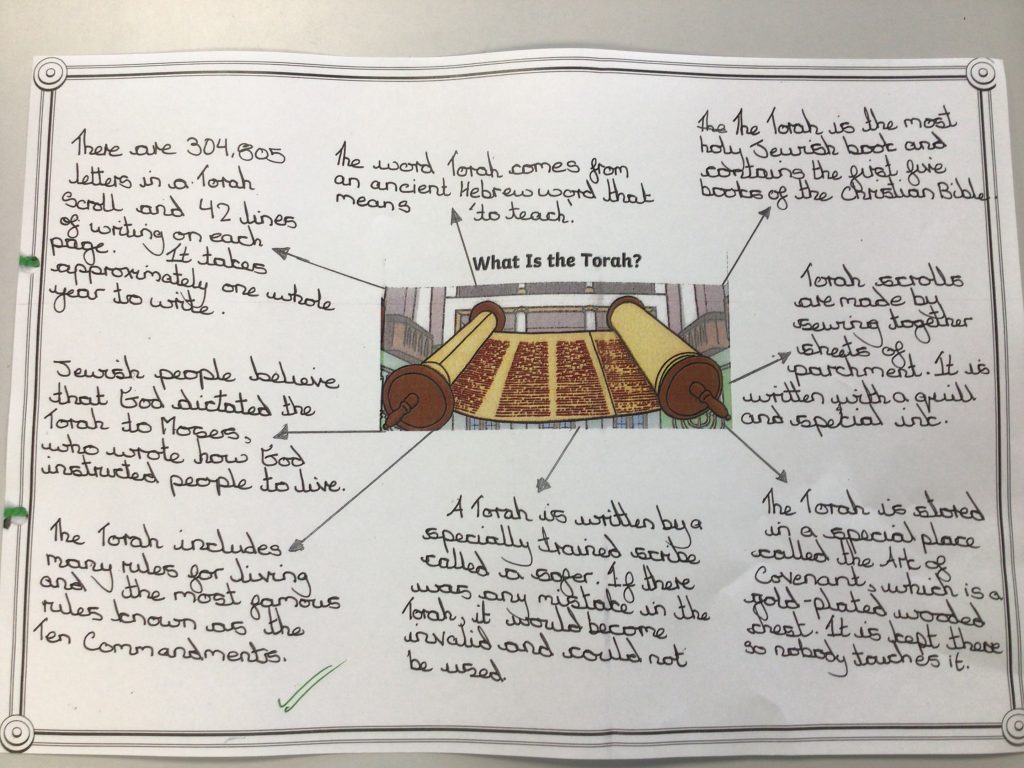 There are 304,805
letters in a Torah
scroll and 42 lines
of writing on each
page. It takes
approximately one whole
year to write.
The word Torah comes from
an ancient Hebrew word that
means 'to teach.'
The The Torah is the most
holy Jewish book and
contains the first five
books of the Christian Bible.
What Is the Torah?
Jewish people believe
that God dictated the
Torah to Moses,
who wrote how God
instructed people to live.
Torah scrolls
are made by
sewing together
sheets of
parchment. It is
written with a quill
and special ink.
The Torah includes
many rules for living
and the most famous
rules known as the
Ten Commandments.
A Torah is written by a
specially trained scribe
called a sofer. If there
was any mistake in the
Torah, it would become
invalid and could not
be used.
The Torah is stored
in a special place
called the Ark of
Covenant, which is a
gold-plated wooded
chest. It is kept there
so nobody touches it.